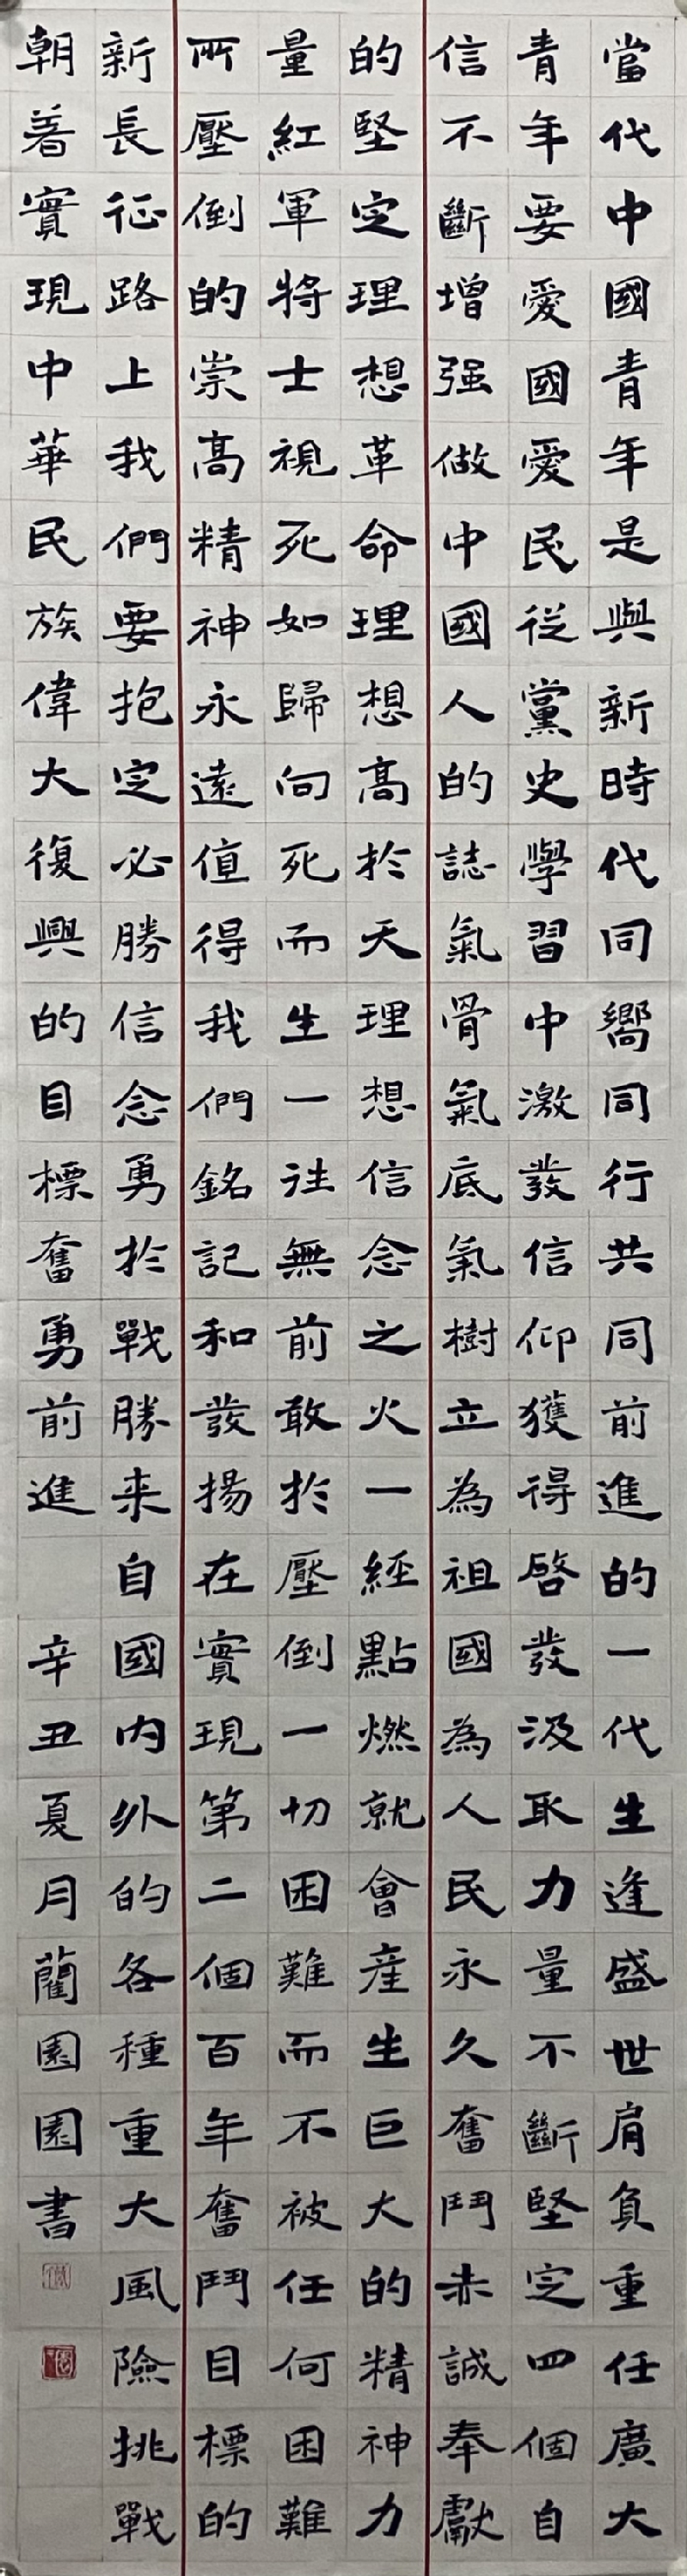 當代中國青年是與新時代同嚮同行共同前進的一代生逢盛世肩負重任廣大
青年要愛國愛民從黨史學習中激發信仰獲得啓發汲取力量不斷堅定四個自
信不斷增强做中國人的誌氣骨氣底氣樹立為祖國為人民永久奮鬥赤誠奉獻
的堅定理想革命理想高於天理想信念之火一經點燃就會産生巨大的精神力
量紅軍將士視死如歸向死而生一往無前敢於壓倒一切困難而不被任何困難
所壓倒的崇高精神永遠值得我們銘記和發揚在實現第二個百年奮鬥目標的
新長征路上我們要抱定必勝信念勇於戰勝来自國内外的各種重大風險挑戰
朝着實現中華民族偉大復興的目標奮勇前進 辛丑夏月藺園園書